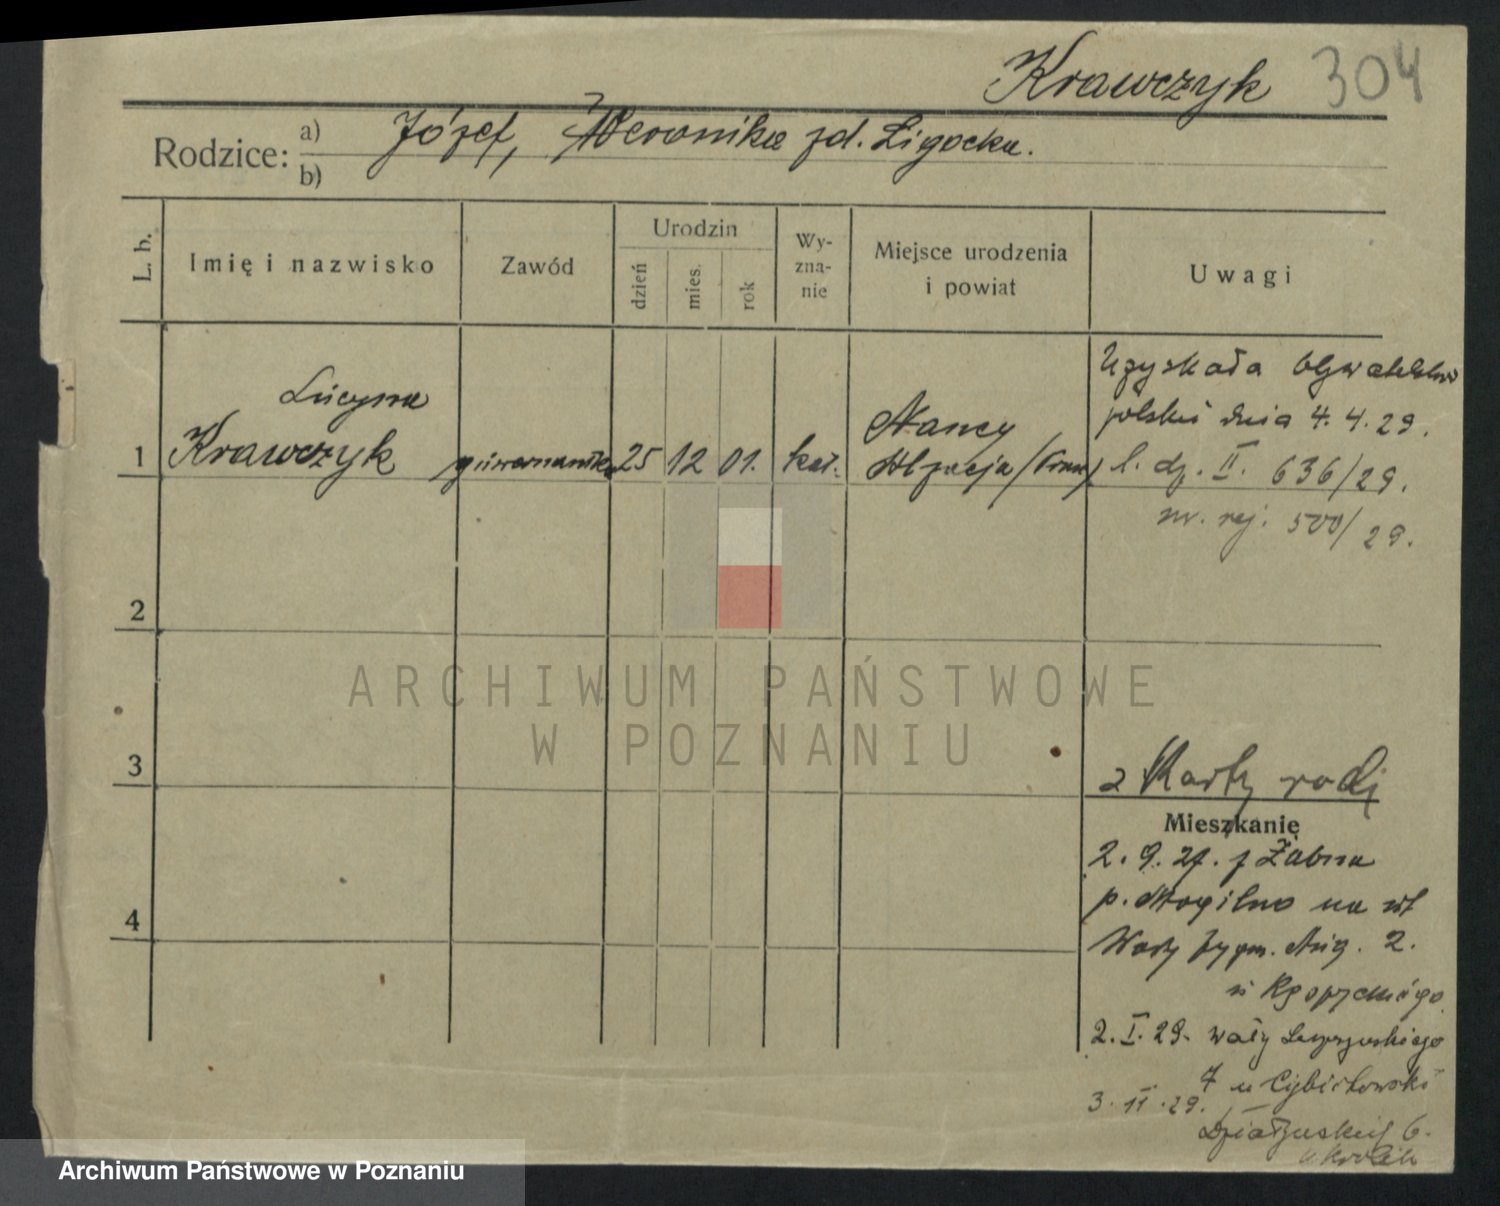 Krawczyk 304
Rodzice: a) Józef, Weronika zd. Ligocka.
b)
L. b. Imię i nazwisko Zawód Urodzin dzień mies. rok Wy-zna-nie Miejsce urodzenia i powiat Uwagi
Lucyna
1 Krawczyk guwernantka 25 12 01. kat. Nancy
Alzacja
Uzyskała
polskie dnia 4.4.29.
l. dz. II. 636/29.
nr. rej. 500/29.
2
ARCHIWUM PAŃSTWOWE
W POZNANIU
3
2 Karty
Mieszkanie
2. 9. 27. z Żabna
p. Mogilno na
Wały Zygm. Aug. 2.
2. I. 29. wały Leszczyńskiego
7 u Cybichowski
3. II. 29.
Działyńskich 6.
4
Archiwum Państwowe w Poznaniu